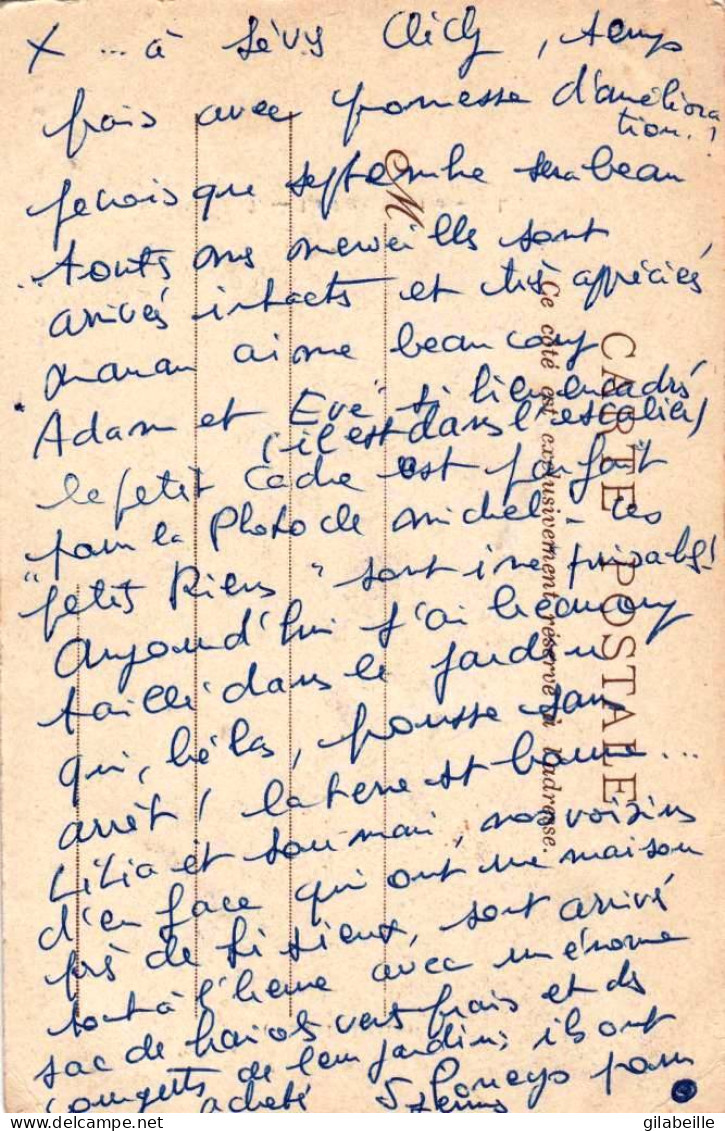 X ... à Clichy, temps
frais avec promesse d'améliora
tion.!
je crois que septembre sera beau
touts nos merveills sont
arrivés intacts et très appréciés
maman aime beaucoup
Adam et Eve" si bien encadré
(il est dans l'escalier)
le petit cadre est parfait
pour la Photo de michel - les
"petits Riens" sont
Aujourd'hui j'ai beaucoup
taillé dans le jardin
qui, hélas, pousse sans
arrêt! la terre est bonne...
Lilia et son mari, nos voisins
d'en face qui ont une maison
près de Lisieux, sont arrivé
tout à l'heure avec un énorme
sac de haricots verts frais et des
courgettes de leur jardin; ils ont
acheté 5 Poneys pour
CARTE POSTALE
Ce côté est exclusivement réservé à l'adresse.
M
gilabeille